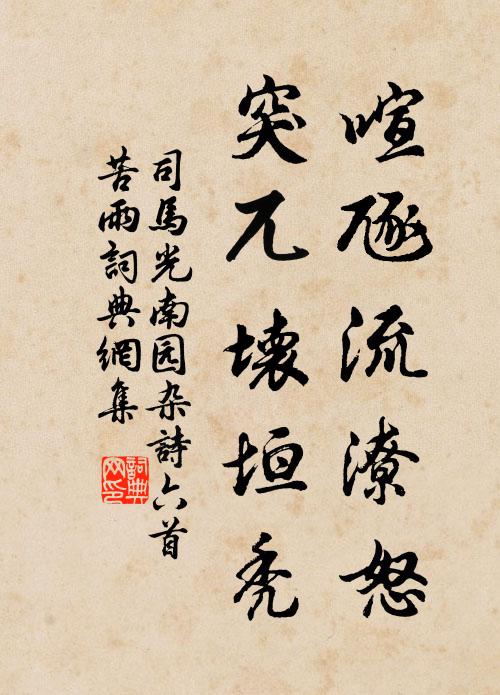 喧豗流潦怒
突兀壞垣禿
司馬光南园杂詩六首
苦雨詞典網集
詞典
网印